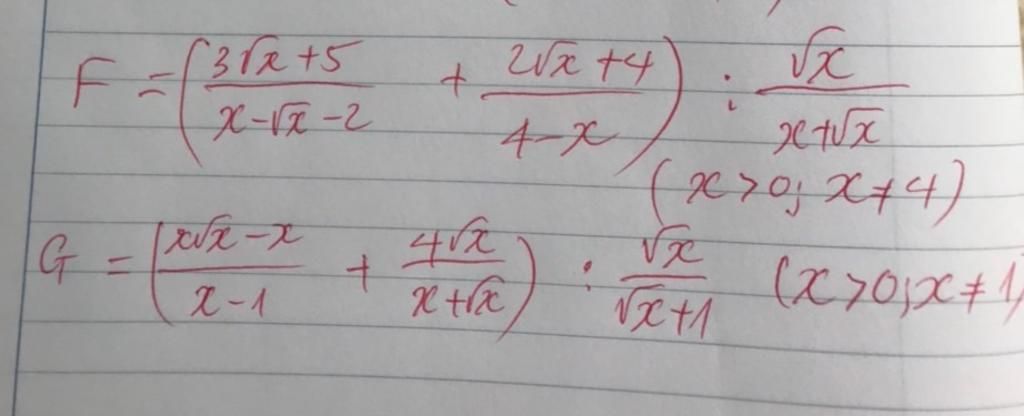 F = ( (3√x + 5)/(x - √x - 2) + (2√x + 4)/(4 - x) ) : √x/(x + √x)
(x > 0; x ≠ 4)
G = ( (x√x - x)/(x - 1) + 4√x/(x + √x) ) : √x/(√x + 1) (x > 0; x ≠ 1)